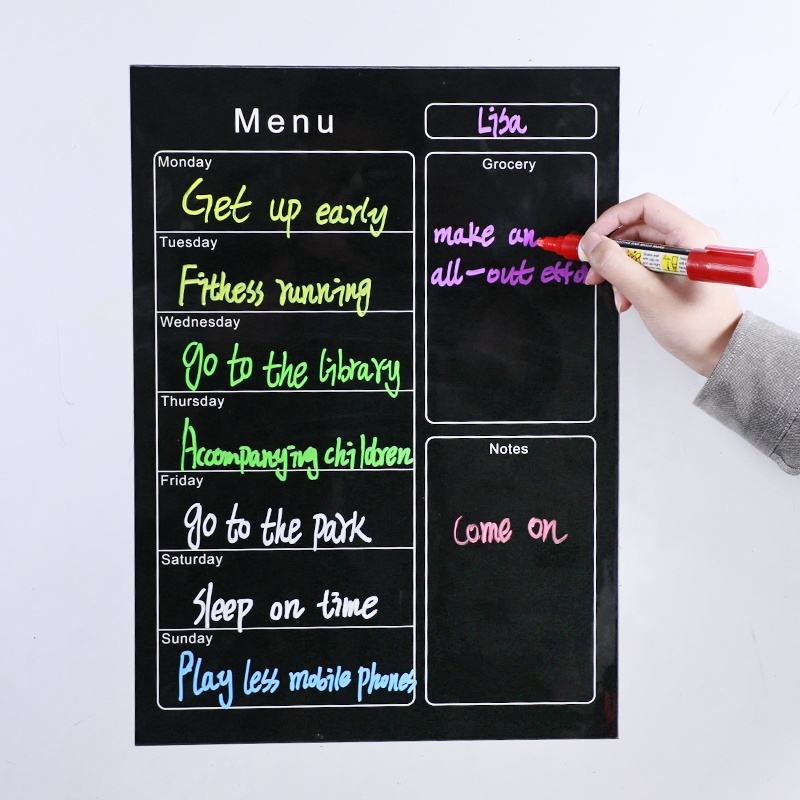 Menu
Monday
Get up early
Tuesday
Fithess running
Wednesday
go to the library
Thursday
Accompanying children
Friday
go to the park
Saturday
Sleep on time
Sunday
Play less mobile phones
Lisa
Grocery
make an
all-out effo
Notes
Come on